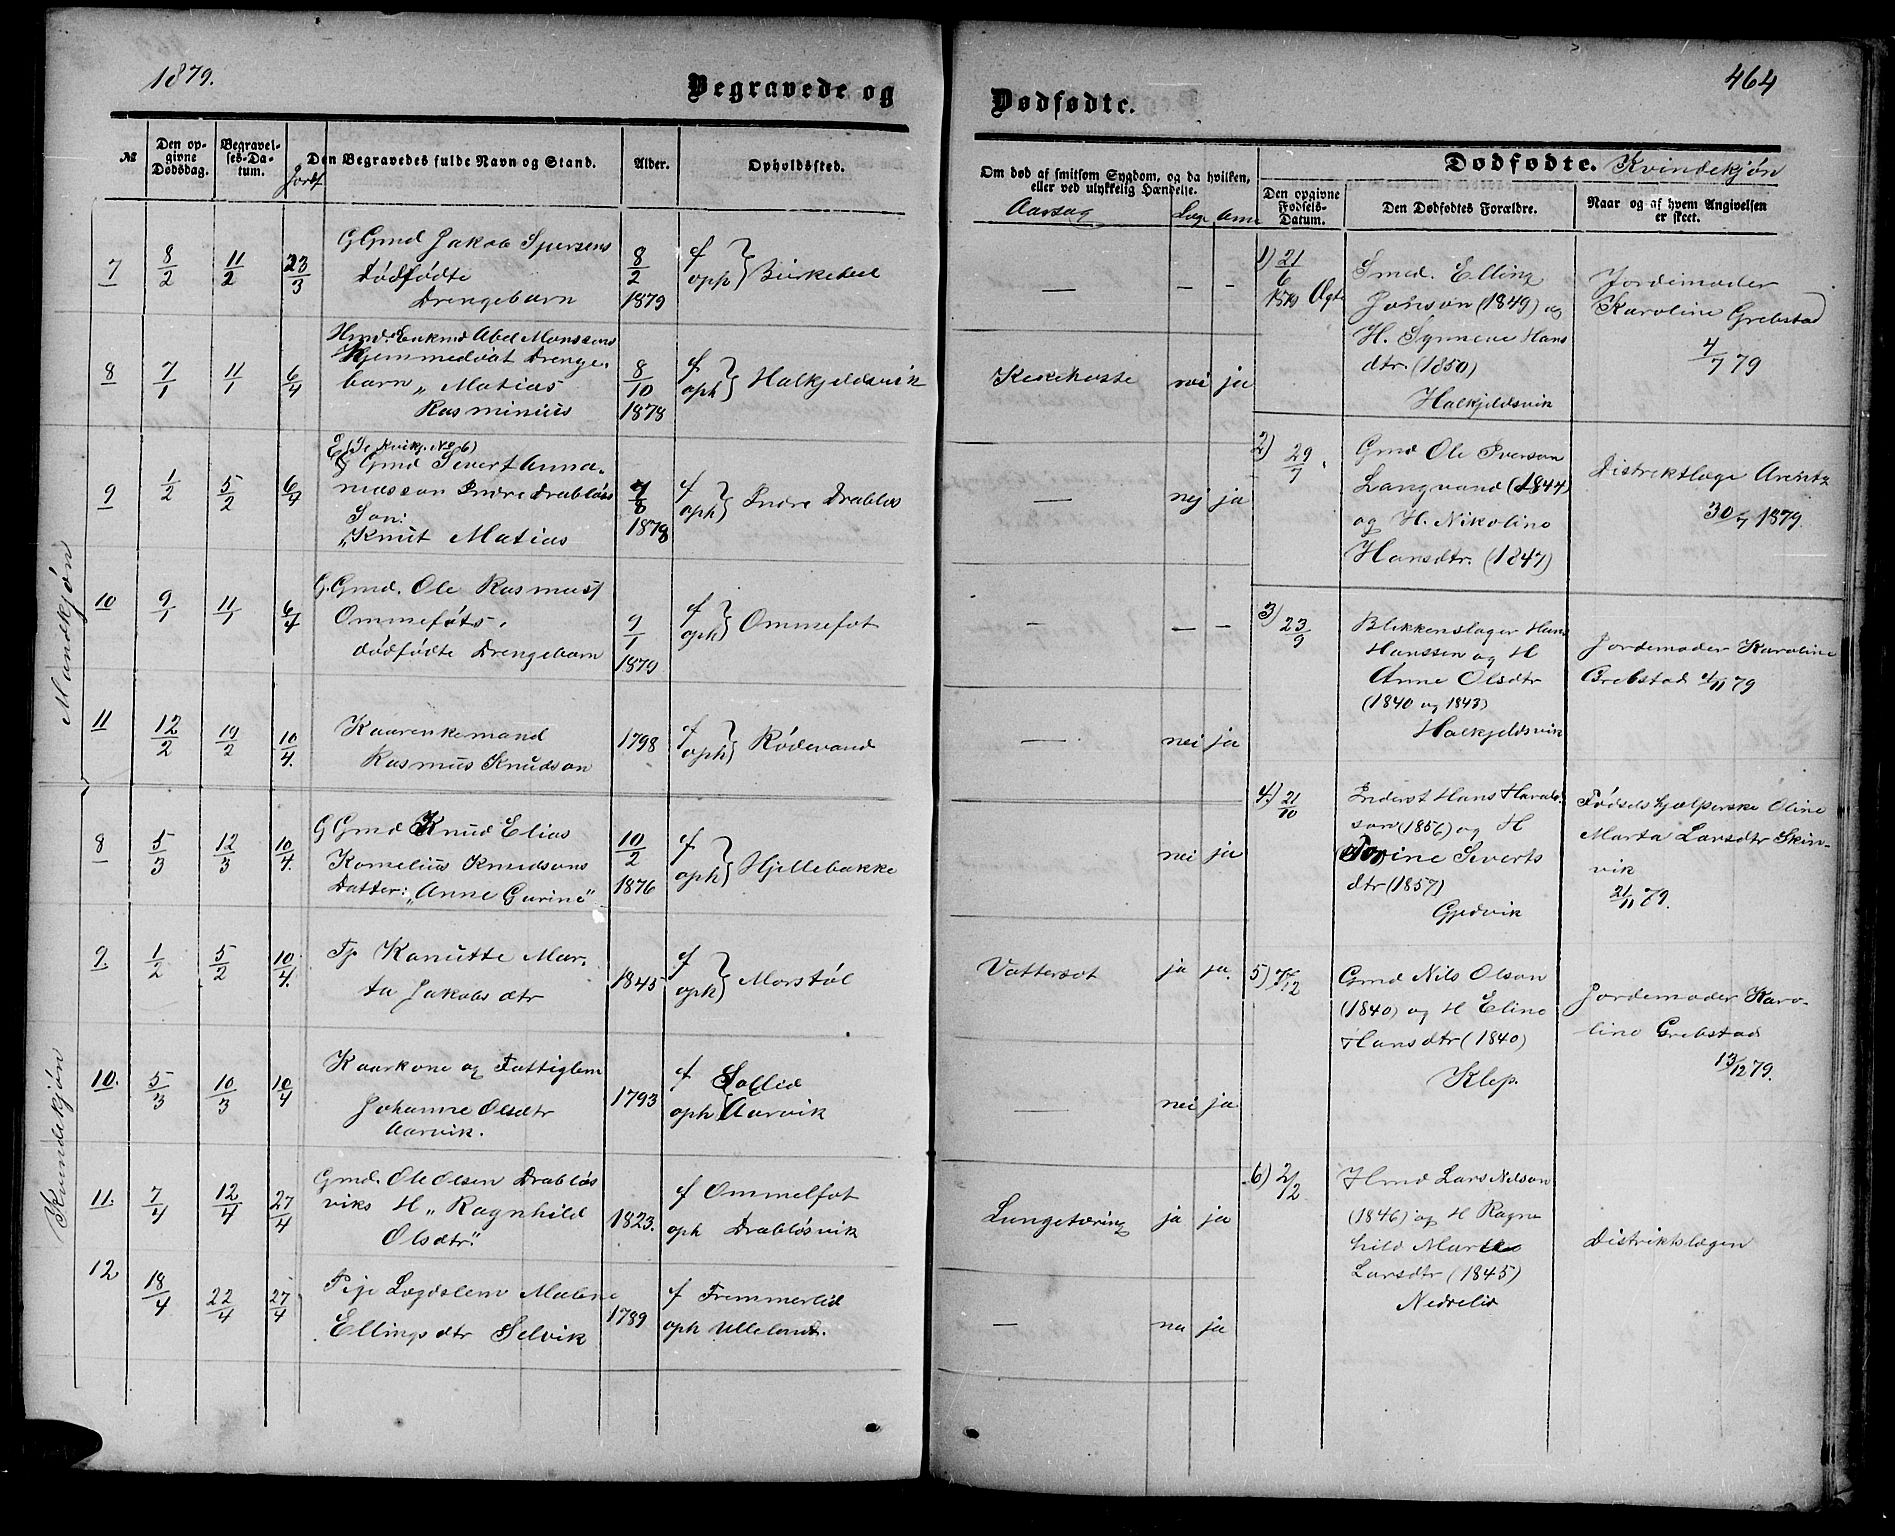 1879.
Begravede og
№
Den op-
givne
Dødsdag.
Begravel-
ses-Da-
tum.
Jordf
Den Begravedes fulde Navn og Stand.
Alder.
Opholdssted.
Mandkjøn
7
8/2
11/2
23/3
G Gmd Jakob Iversens
Dødfødte
Drengebarn
8/2
1879
f
oph } Birkedal
8
7/1
11/1
6/4
Hmd. Enkmd Abel Monssens
Hjemmedøbt Drenge-
barn „Matias
Rasminius
8/10
1878
f
oph } Halkjeldsvik
9
1/2
5/2
6/4
E (Se Kvikj. No 6)
G Gmd Sivert Anna-
niassøn Indre Drabløs
Søn:
„Knut Matias
7/8
1878
f
oph } Indre Drabløs
10
9/1
11/1
6/4
G. Gmd. Ole Rasmuss
Ommefots,
dødfødte Drengebarn
9/1
1879
f
oph } Ommefot
11
12/2
19/2
10/4.
Kaarenkemand
Rasmus Knudson
1798
f
oph } Rødevand
Kvindekjøn
8
5/3
12/3
10/4.
G Gmd Knud Elias
Kornelius Knudsøns
Datter: „Anne Gurine"
10/2
1876
f
oph } Hjellebakke
9.
1/2
5/2
10/4.
Tp Kanutte Mar-
ta Jakobsdtr
1845
f
oph } Morstøl
10.
5/3
10/3
10/4
Kaarkone og Fattiglem
Johanne Olsdtr
Aarvik.
1793
f Sollid
oph Aarvik
11.
7/4
12/4
27/4
Gmd. Ole Olsen Drabløs
viks H „Ragnhild
Olsdtr"
1823.
f Ommelfot
oph Drabløsvik
12
18/4
22/4
27/4
Pige Lægdslem Malene
Ellingsdtr Selvik
1789
f Fremmerlid
oph Ulleland.
464
Dødfødte.
Om død af smitsom Sygdom, og da hvilken,
eller ved ulykkelig Hændelse.
Aarsag
Læge
Anm
Dødfødte. Kvindekjøn
Den opgivne
Fødsels-
Datum.
Den Dødfødtes Forældre.
Naar og af hvem Angivelsen
er skeet.
—
—
—
Kikhoste
nei
ja
—
nej
ja
—
—
—
—
nei
ja
nei
ja
Vattersot
ja
ja.
—
nei
ja
Lungetæring
ja
ja
—
nei
ja
1) 21/6
1879 Ægte
Smed. Elling
Jonson (1849) og
H. Synneve Hans
dtr. (1850)
Halkjeldsvik
Jordemoder
Karoline Grebstad
4/7 79
2) 29/7
Gmd Ole Iverson
Langvand (1844)
og H. Nikoline
Hansdtr. (1847)
Distriktslæge Arentz
30/7 1879
3) 23/9
Blikkenslager Hans
Hanssen og H
Anne Olsdtr
(1840 og 1843)
Halkjeldsvik
Jordemoder Karoline
Grebstad 4/11 79
4) 21/10
Inderst Hans Harald-
son (1856) og H
Torine Siverts
dtr (1857)
Gjedvik
Fødselshjælperske Oline
Marta Larsdtr Skin-
vik
21/11 79.
5) 7/12
Gmd Nils Olson
(1840) og H Eline
Hansdtr (1840)
Klep.
Jordemoder Karo-
line Grebstad
13/12 79.
6) 2/12
Hmd Lars Nilson
(1846) og H Ragn-
hild Marta
Larsdtr (1845)
Nedrelid
Distriktslægen